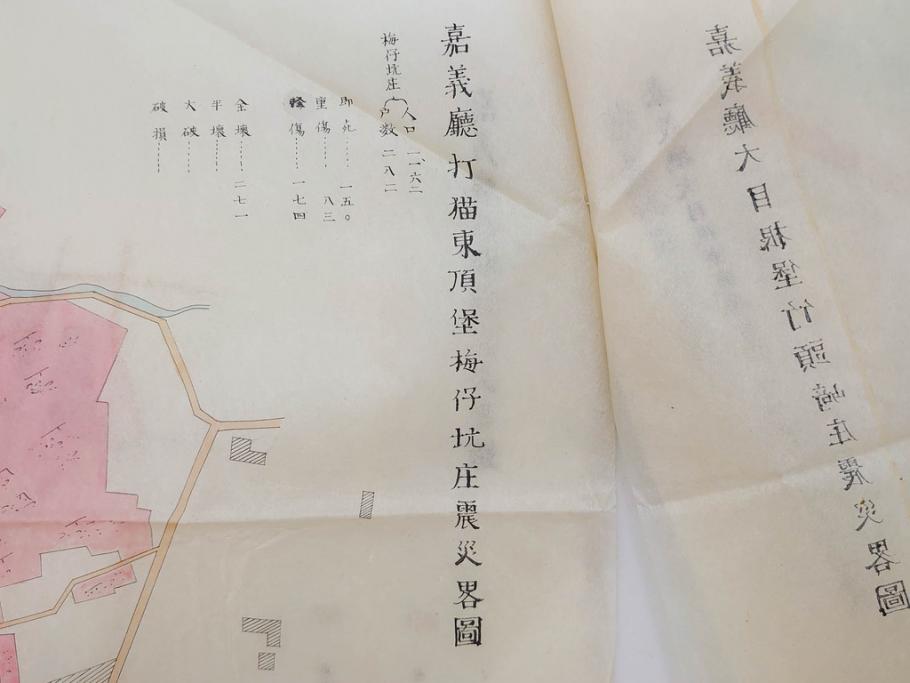 嘉義廳大目根堡竹頭崎庄震災畧圖
嘉義廳打猫東頂堡梅仔坑庄震災畧圖
梅仔坑庄
人口 一、一六二
戸数 二八二
即死……一五〇
重傷……八三
軽傷……一七四
全壞……二七一
半壞……
大破……
破損……